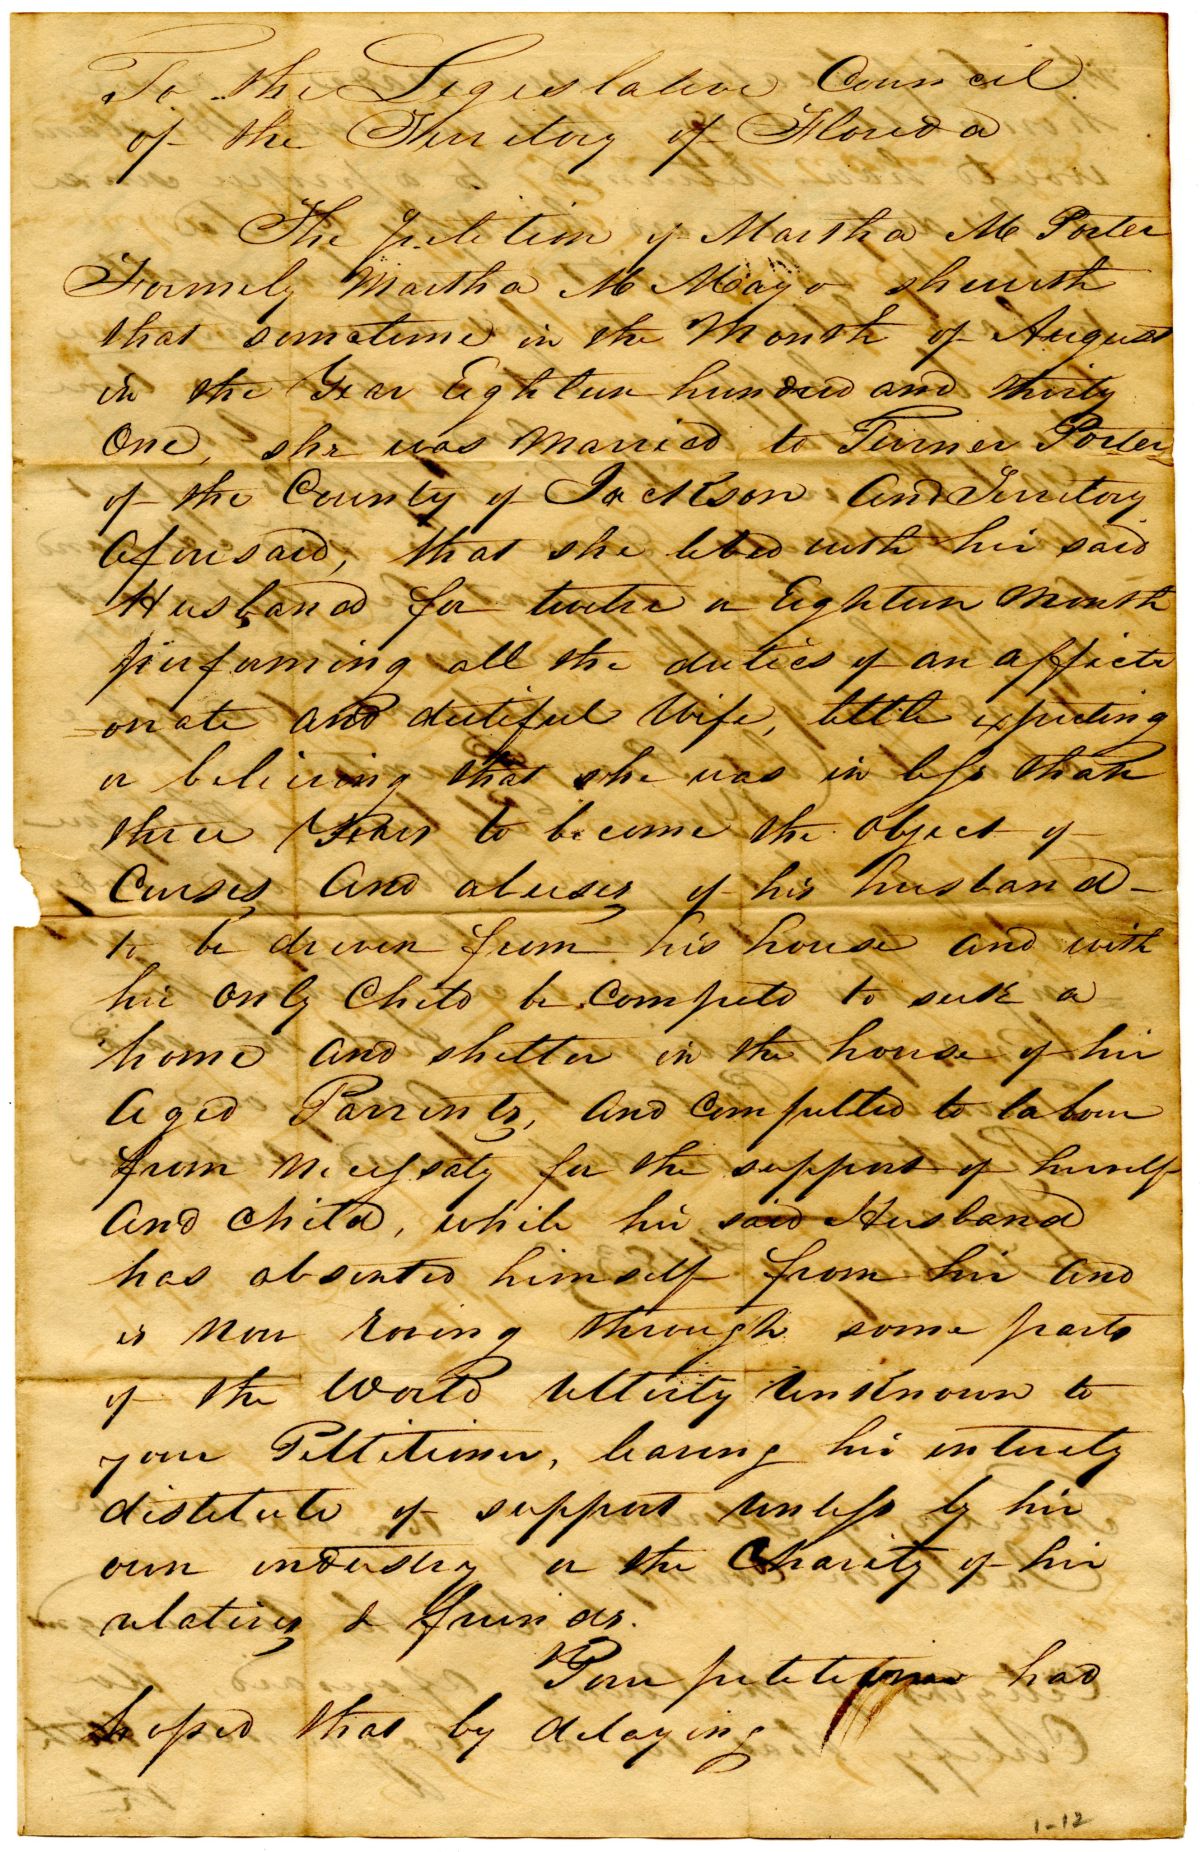 To the Legislative Council
of the Territory of Florida
The petition of Martha M Porter
Formerly Martha M Mayo sheweth
that sometime in the Month of August
in the Year Eighteen hundred and thirty
One, she was Married to Turner Porter
of the County of Jackson And Territory
Aforesaid, that she lived with her said
Husband for twelve or Eighteen Month
performing all the duties of an affecti
=onate and dutiful Wife, little expecting
or believing that she was in less than
three Years to become the Object of
Curses And abuses of her husband -
to be driven from his house and with
her Only Child be Compeld to seek a
home and shelter in the house of her
Aged Parrents, and Compelled to labour
from Necessaty for the support of herself
And Child, while her said Husband
has absented himself from her and
is Now roving through some parts
of the World Utterly Unknown to
your Pettitioner, leaving her entirely
distitute of support Unless by her
own industry or the Charity of her
relatives & friends.
Your petetitioner had
hoped that by delaying
1-12